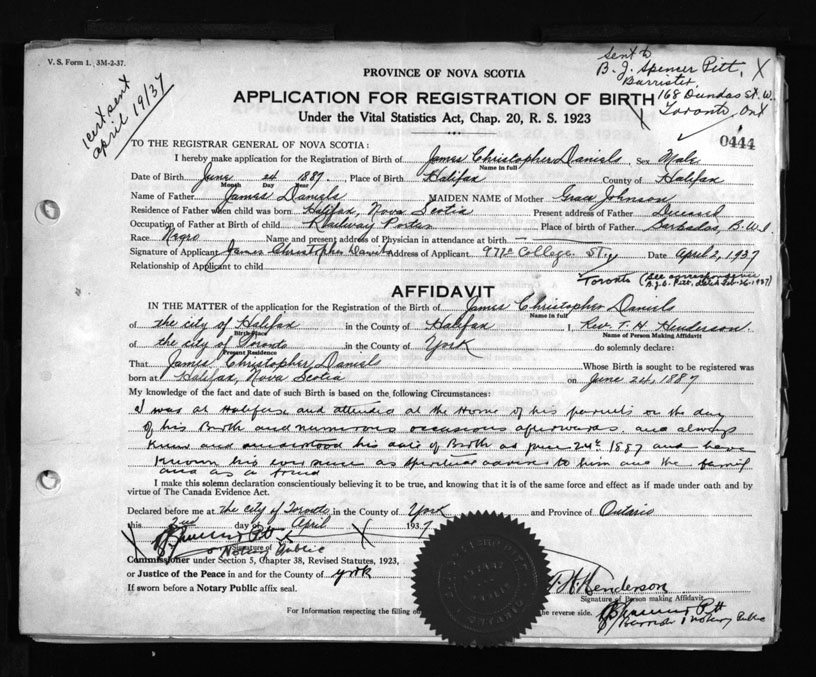 V. S. Form 1. 3M-2-37.
sent to
B. J. Spencer Pitt, X
Barrister,
168 Dundas St. W.
Toronto, Ont
cert sent
april 19/37
PROVINCE OF NOVA SCOTIA
APPLICATION FOR REGISTRATION OF BIRTH
Under the Vital Statistics Act, Chap. 20, R. S. 1923
0444
TO THE REGISTRAR GENERAL OF NOVA SCOTIA:
I hereby make application for the Registration of Birth of James Christopher Daniels, Sex Male
Name in full
Date of Birth June 24 1887. Place of Birth Halifax County of Halifax
Month Day Year
Name of Father James Daniels MAIDEN NAME of Mother Grace Johnson
Residence of Father when child was born Halifax, Nova Scotia Present address of Father Deceased
Occupation of Father at Birth of child Railway Porter Place of birth of Father Barbados, B.W.I.
Race Negro Name and present address of Physician in attendance at birth
Signature of Applicant James Christopher Daniels Address of Applicant 977a College St., Date April 2, 1937
Relationship of Applicant to child Toronto (see correspondence
B.J.S. Pitt, dated Feb. 26, 1937)
AFFIDAVIT
IN THE MATTER of the application for the Registration of the Birth of James Christopher Daniels
Name in full
of the city of Halifax in the County of Halifax I, Rev. T. H. Henderson.
Birth Place Name of Person Making Affidavit
of the city of Toronto in the County of York do solemnly declare:
Present Residence
That James Christopher Daniels Whose Birth is sought to be registered was
born at Halifax, Nova Scotia on June 24, 1887
My knowledge of the fact and date of such Birth is based on the following Circumstances:
I was at Halifax and attended at the Home of his parents on the day
of his Birth and numerous occasions afterwards and always
knew and understood his date of Birth as June 24th 1887 and have
known him ever since as spiritual adviser to him and the family
and as a friend
I make this solemn declaration conscientiously believing it to be true, and knowing that it is of the same force and effect as if made under oath and by
virtue of The Canada Evidence Act.
Declared before me at the city of Toronto in the County of York and Province of Ontario
this 2nd day of April 1937
B J Spencer Pitt
Signature of
Notary Public
Commissioner under Section 5, Chapter 38, Revised Statutes, 1923,
or Justice of the Peace in and for the County of York
If sworn before a Notary Public affix seal.
T. H. Henderson
Signature of Person making Affidavit
For Information respecting the filing of the reverse side.
B J Spencer Pitt
Barrister & Notary Public